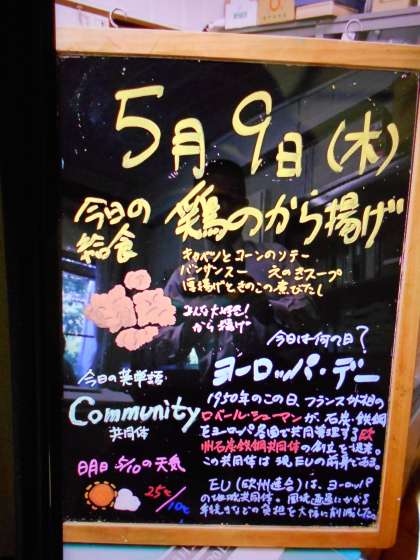 5月9日(木)
今日の
給食
鶏のから揚げ
キャベツとコーンのソテー
バンサンスー えのきスープ
厚揚げときのこの煮びたし
みんな大好き!
から揚げ
今日は何の日?
ヨーロッパ・デー
今日の英単語・
Community
共同体
1950年のこの日、フランス外相の
ロベール・シューマンが、石炭・鉄鋼
をヨーロッパ各国で共同管理する欧
州石炭鉄鋼共同体の創立を提案。
この共同体は現EUの前身である。
明日5/10の天気
25℃
/10℃
EU(欧州連合)は、ヨーロッパ
の地域共同体。国境通過にかかる
手続きなどの負担を大幅に削減した。